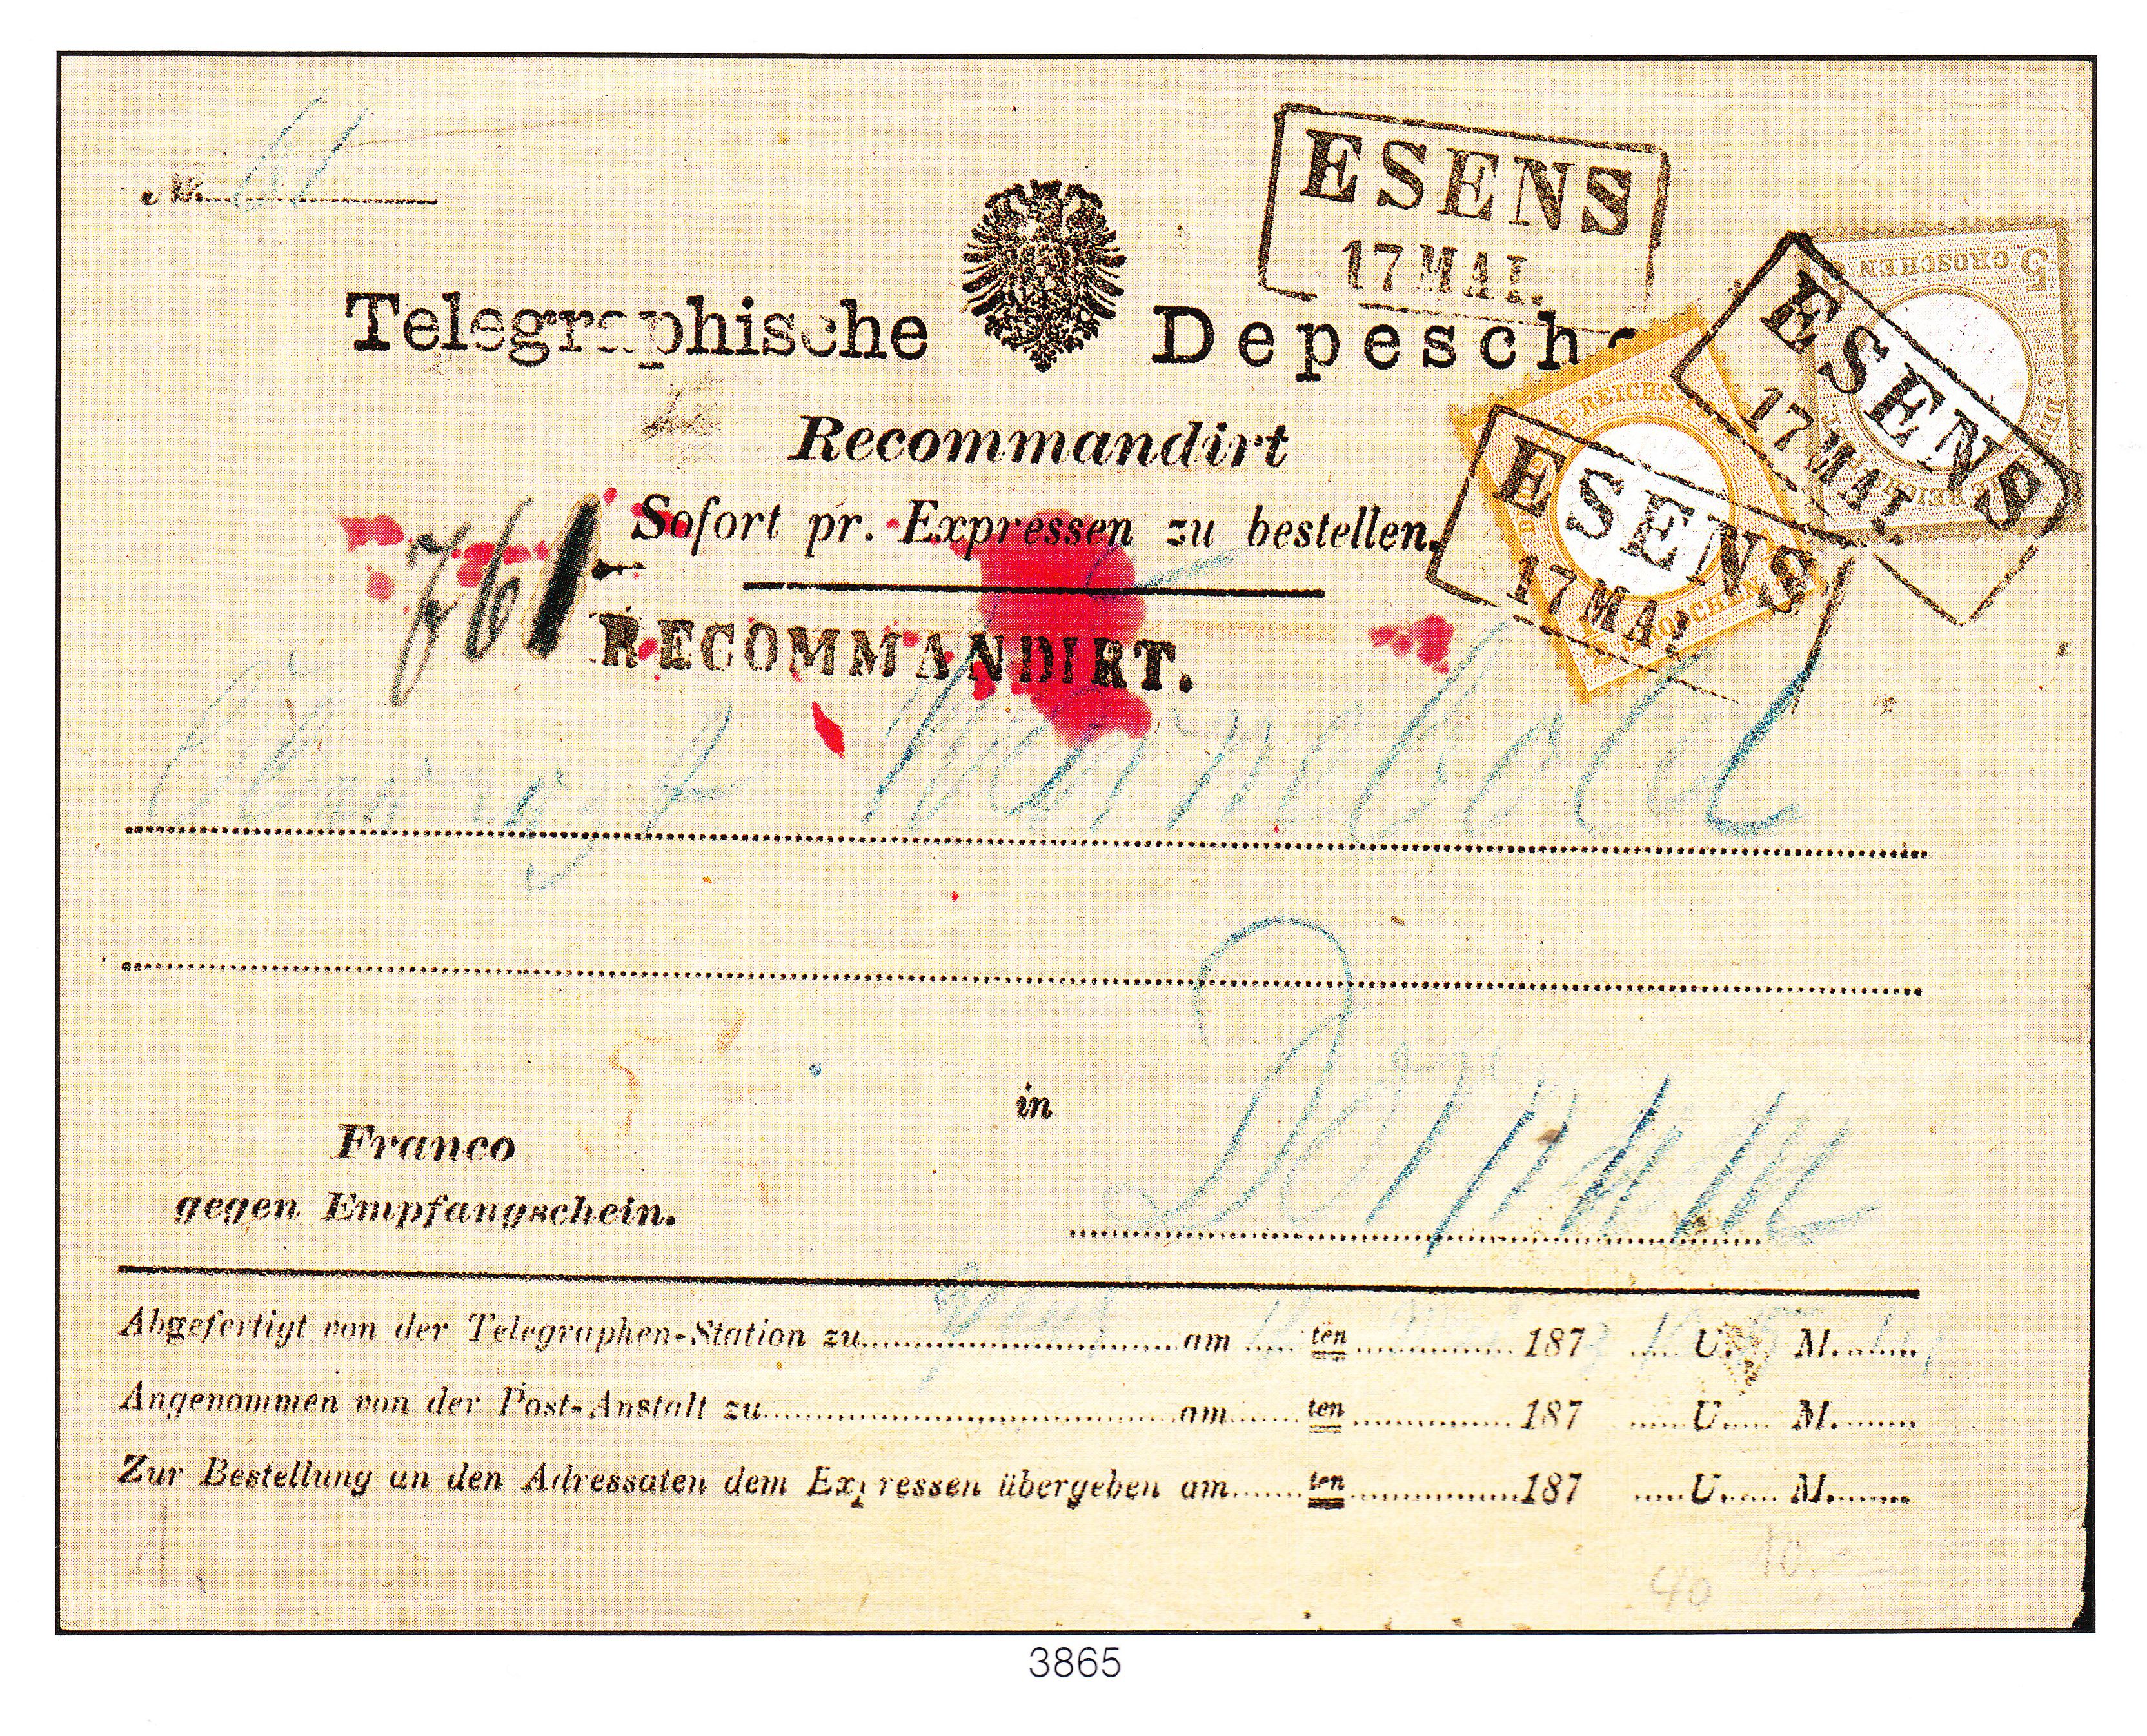 ESENS
17 MAI.
№ 61
Telegraphische Depesche
5 GROSCHEN
ESENS
17 MAI.
Recommandirt
ESENS
17 MAI
Sofort pr. Expressen zu bestellen.
761
RECOMMANDIRT.
in Dornum
Franco
gegen Empfangschein.
Abgefertigt von der Telegraphen-Station zu am ten 187 U. M.
Angenommen von der Post-Anstalt zu am ten 187 U. M.
Zur Bestellung an den Adressaten dem Expressen übergeben am ten 187 U. M.
40 10.-
3865